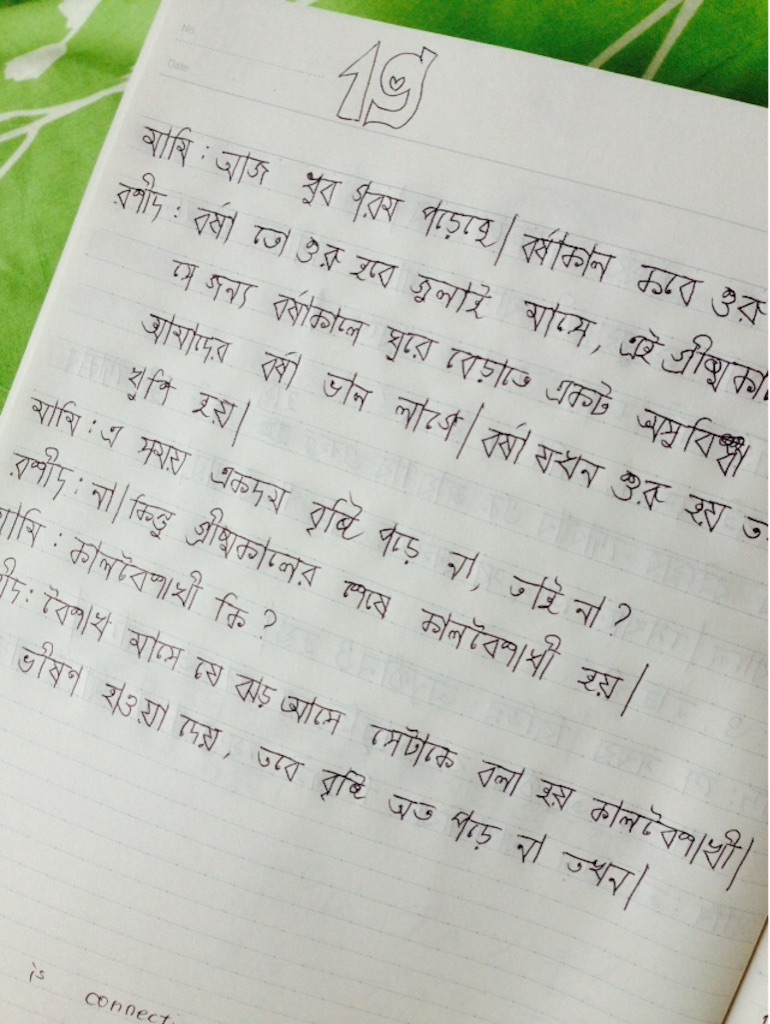 No.
Date
19
মামি : আজ খুব গরম পড়েছে| বর্ষাকাল কবে শুরু
রশীদ : বর্ষা তো শুরু হবে জুলাই মাসে, এই গ্রীষ্মকা
সে জন্য বর্ষাকালে ঘুরে বেড়াতে একটু অসুবিধা
আমাদের বর্ষা ভাল লাগে| বর্ষা যখন শুরু হয় ত
খুশি হয়|
মামি : এ সময় একদম বৃষ্টি পড়ে না, তাই না ?
রশীদ : না| কিন্তু গ্রীষ্মকালের শেষে কালবৈশাখী হয়|
মামি : কালবৈশাখী কি ?
শীদ : বৈশাখ মাসে যে ঝড় আসে সেটাকে বলা হয় কালবৈশাখী|
ভীষণ হাওয়া দেয়, তবে বৃষ্টি অত পড়ে না তখন|
is connect